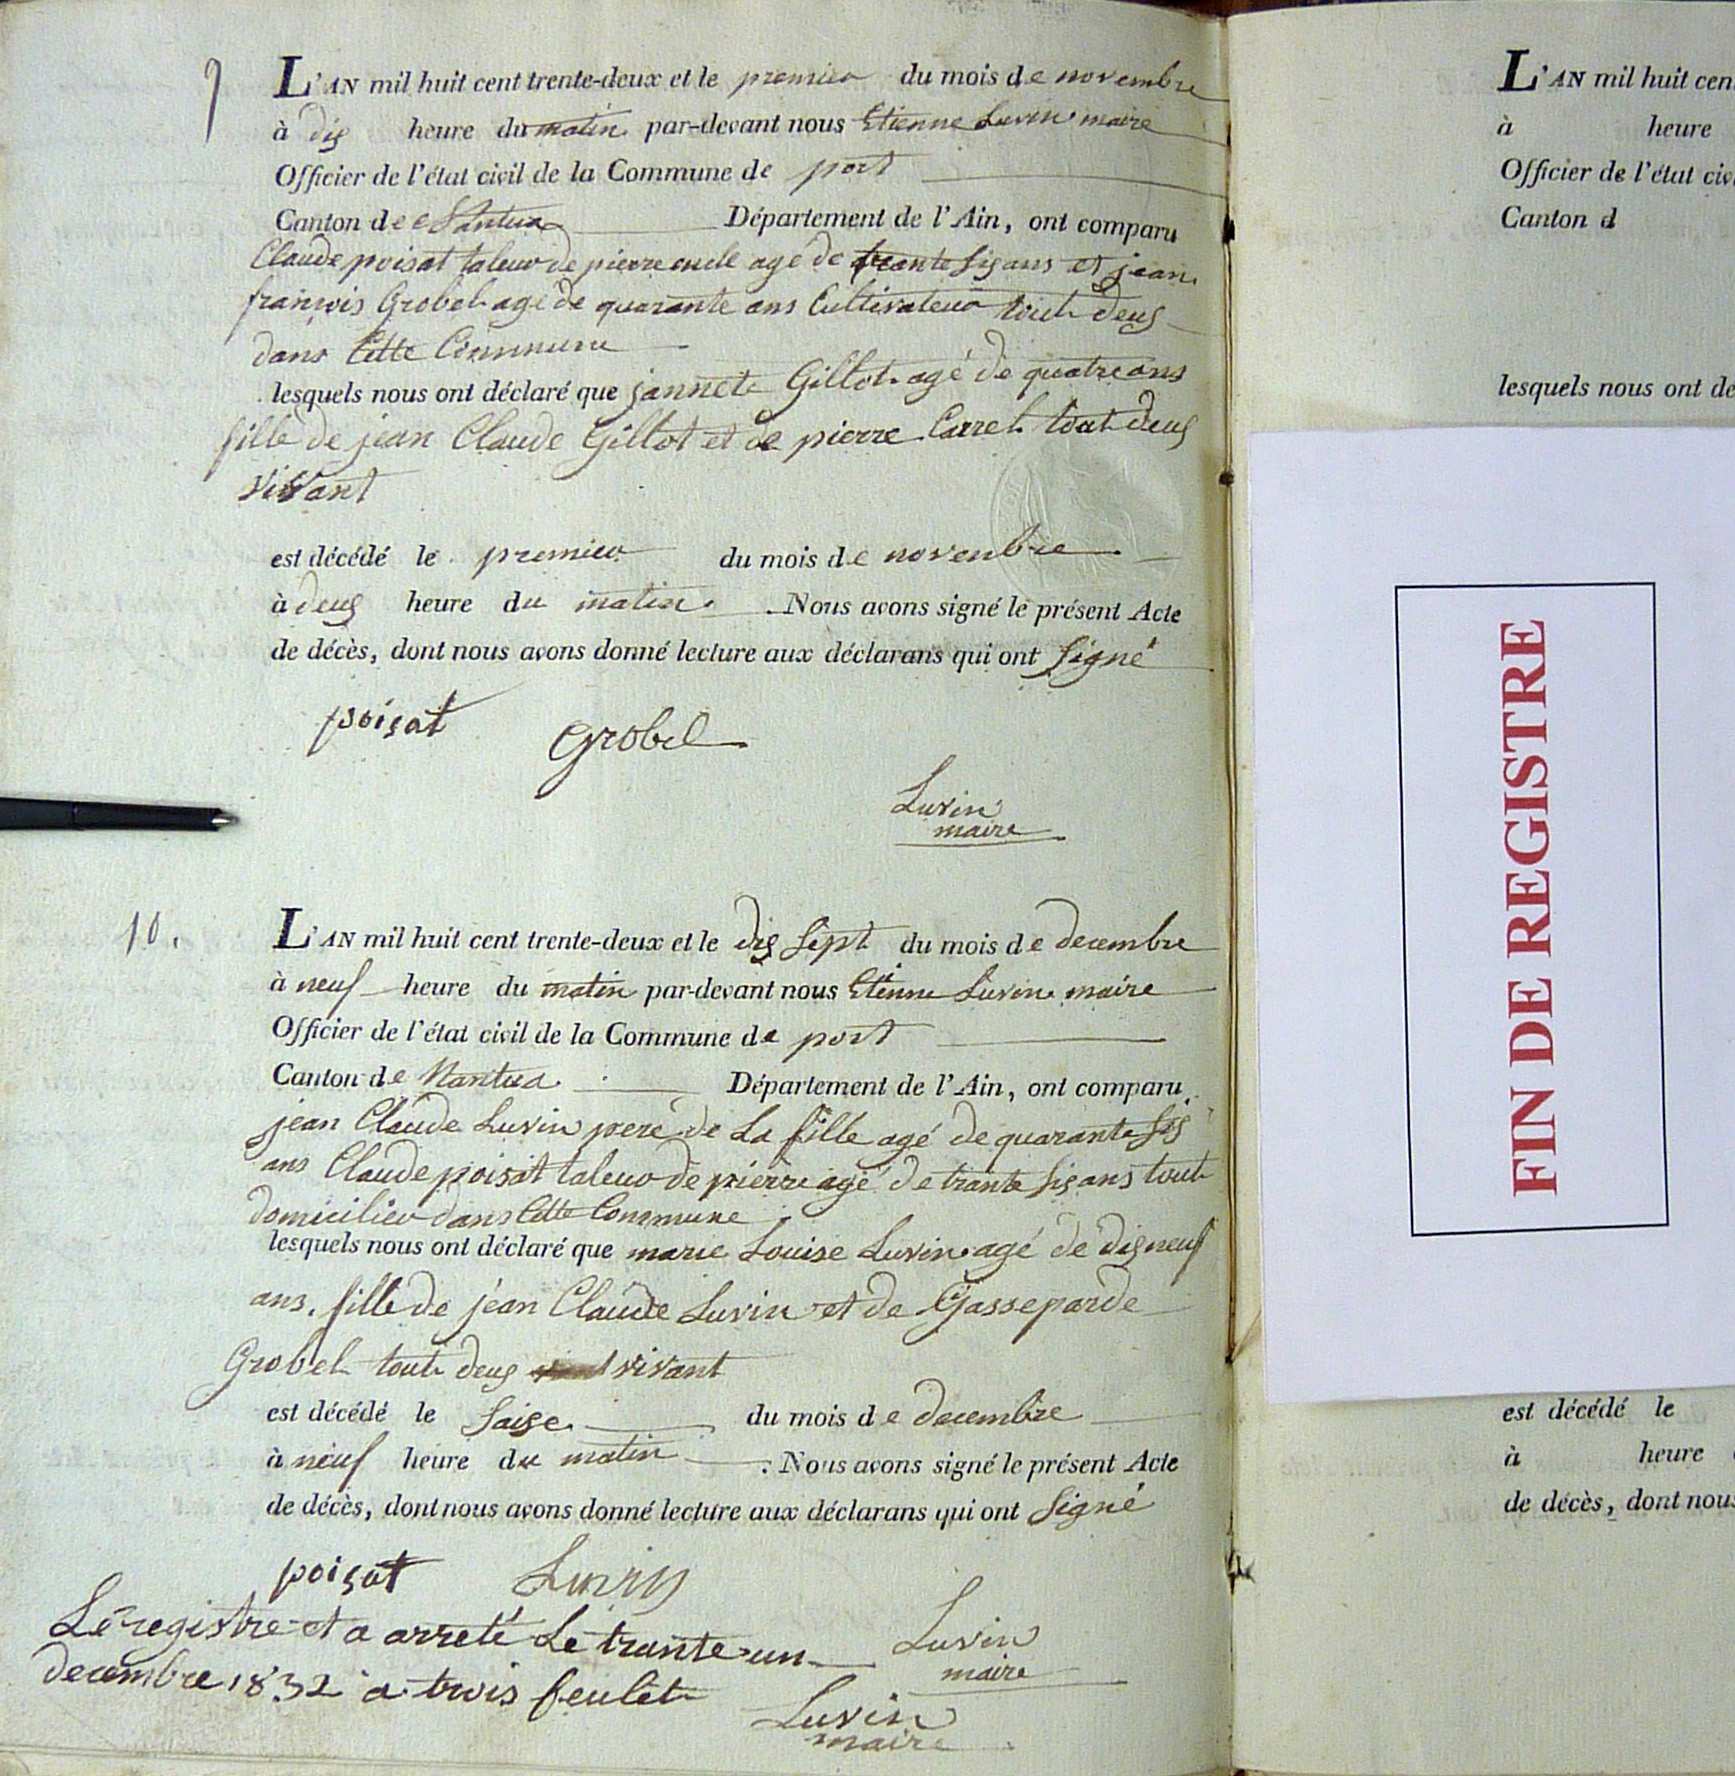 9
L'AN mil huit cent trente-deux et le premier du mois de novembre
à dis heure du matin par-devant nous Etienne Luvin maire
Officier de l'état civil de la Commune de port
Canton de Nantua Département de l'Ain, ont comparu
Claude poisat taleur de pierre oncle agé de trante sis ans et jean
françois Grobel agé de quarante ans Cultivateur tout deus
dans Cette Commune
lesquels nous ont déclaré que jannete Gillot agé de quatre ans
fille de jean Claude Gillot et de pierre Carret tout deus
vivant
est décédé le premier du mois de novenbre
à deus heure du matin. Nous avons signé le présent Acte
de décès, dont nous avons donné lecture aux déclarans qui ont signé
poisat Grobel
Luvin
maire
10.
L'AN mil huit cent trente-deux et le dis sept du mois de decembre
à neuf heure du matin par-devant nous Etienne Luvin maire
Officier de l'état civil de la Commune de port
Canton de Nantua Département de l'Ain, ont comparu
jean Claude Luvin pere de La fille agé de quarante sis
ans Claude poisat taleur de pierre agé de trante sis ans tout
domicilier dans Cette Commune
lesquels nous ont déclaré que marie Louise Luvin agé de dis neuf
ans. fille de jean Claude Luvin et de Gasseparde
Grobel tout deus vivant
est décédé le saise du mois de decembre
à neuf heure du matin. Nous avons signé le présent Acte
de décès, dont nous avons donné lecture aux déclarans qui ont signé
poisat Luvin
Le registre et a arreté Le trante un
decembre 1832 a trois feulet
Luvin
maire
Luvin
maire
L'AN mil huit cen
à heure
Officier de l'état civ
Canton d
lesquels nous ont dé
FIN DE REGISTRE
est décédé le
à heure
de décès, dont nous